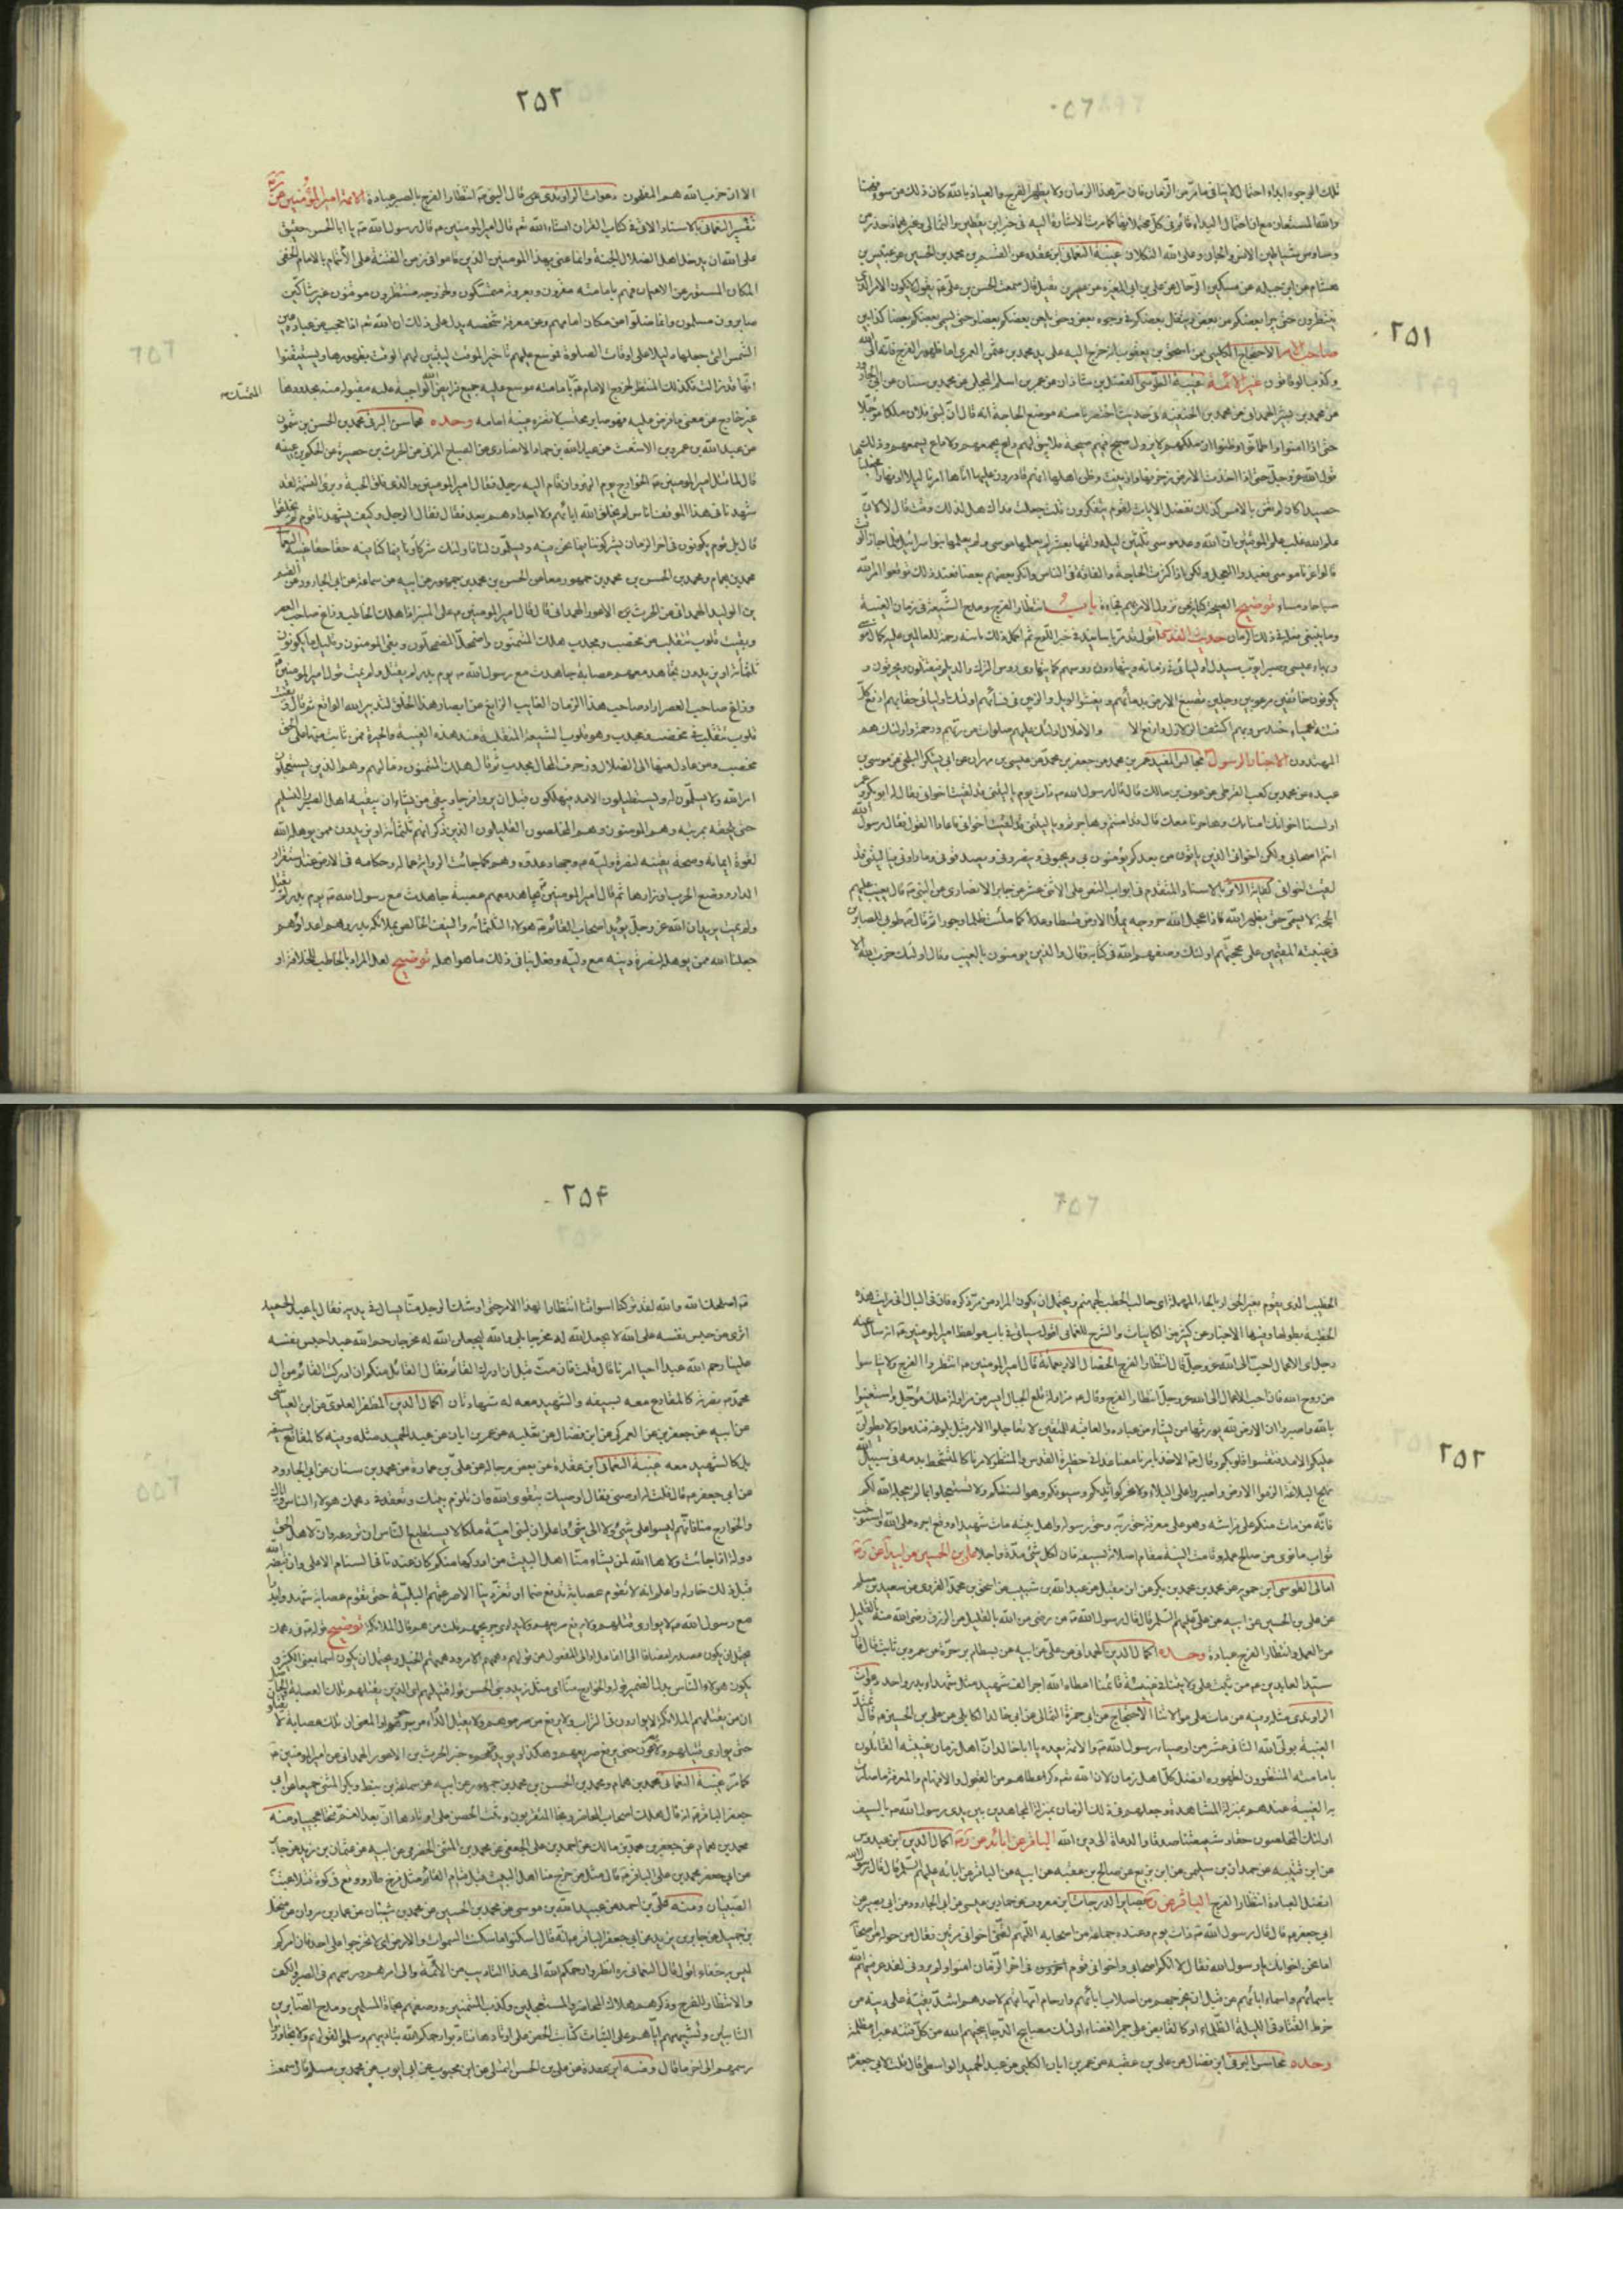 ٢٥١
تلك الوجوه ابداء احتمال لا ينافى ما مرّ من الزمان فان مرّ هذا الزمان ولم يظهر الفرج والعياذ بالله كان ذلك من سوء فهمنا
والله المستعان مع ان احتمال البداء قائم فى كل محتملاتها كما مرت الاشارة اليه فى خبر ابن يقطين والثمالى وغيرهما فاحذر من
وساوس شياطين الانس والجان وعلى الله التكلان غيبة النعمانى ابن عقده عن القسم بن محمد بن الحسين عن عبيس بن
هشام عن ابن جبله عن مسكين الرحال عن على بن ابى المغيره عن عميره بنت نفيل قال سمعت الحسن بن على يقول لا يكون الامر الذى
ينتظرون حتى يبرا بعضكم من بعض ويتفل بعضكم فى وجوه بعض وحتى يلعن بعضكم بعضا وحتى يسمى بعضكم بعضا كذابين
الاحتجاج الكلينى عن اسحق بن يعقوب انه خرج اليه على يد محمد بن عثمن العمرى اما ظهور الفرج فانه الى الله
وكذب الوقاتون غير الائمة غيبة الطوسى الفضل بن شاذان عن عمر بن اسلم البجلى عن محمد بن سنان عن ابى الجارود
عن محمد بن بشر الهمدانى عن محمد بن الحنفيه فى حديث اختصرنا منه موضع الحاجة انه قال ان لبنى فلان ملكا مؤجلا
حتى اذا امنوا واطمانوا وظنوا ان ملكهم لا يزول صيح فيهم صيحة فلم يبق لهم راع يجمعهم ولا داع يسمعهم وذلك
قول الله عز وجل حتى اذا اخذت الارض زخرفها وازينت وظن اهلها انهم قادرون عليها اتاها امرنا ليلا او نهارا فجعلناها
حصيدا كان لم تغن بالامس كذلك نفصل الايات لقوم يتفكرون قلت جعلت فداك هل لذلك وقت قال لا لان
علم الله غلب علم الموقتين ان الله وعد موسى ثلثين ليلة واتمها بعشر لم يعلمها موسى ولم يعلمها بنو اسرائيل فلما جاز الوقت
قالوا غرنا موسى فعبدوا العجل ولكن اذا كثرت الحاجة والفاقة فى الناس وانكر بعضهم بعضا فعند ذلك توقعوا امر الله
صباحا ومساء توضيح الصيحة كناية عن نزول الامر بهم فجاءة باب انتظار الفرج ومدح الشيعة فى زمان الغيبة
وما ينبغى فعله فى ذلك الزمان حديث القدسى
وبهاء عيسى وصبر ايوب سيذل اوليائى فى زمانه ويتهادون رؤوسهم كما يتهادى رؤس الترك والديلم فيقتلون ويحرقون و
يكونون خائفين مرعوبين وجلين تصبغ الارض بدمائهم ويفشو الويل والرنين فى نسائهم اولئك اوليائى حقا بهم ادفع كل
فتنة عمياء حندس وبهم اكشف الزلازل وارفع الاصار والاغلال اولئك عليهم صلوات من ربهم ورحمة واولئك هم
المهتدون الاخبار الرسول مجالس المفيد
عبيده عن محمد بن كعب القرظى عن عوف بن مالك قال قال رسول الله ص ذات يوم يا ليتنى قد لقيت اخوانى فقال له ابو بكر وعمر
اولسنا اخوانك امنا بك وهاجرنا معك قال قد امنتم وهاجرتم ويا ليتنى قد لقيت اخوانى فاعادا القول فقال رسول الله
انتم اصحابى ولكن اخوانى الذين ياتون من بعدكم يؤمنون بى ويحبونى وينصرونى ويصدقونى وما راونى فيا ليتنى قد
لقيت اخوانى كفاية الاثر بالاسناد المتقدم فى ابواب النص على الاثنى عشر عن جابر الانصارى عن النبى ص قال يغيب عنهم
الحجة لا يسمى حتى يظهره الله فاذا عجل الله خروجه يملا الارض قسطا وعدلا كما ملئت ظلما وجورا ثم قال ص طوبى للصابرين
فى غيبته للمقيمين على محجتهم اولئك وصفهم الله فى كتابه وقال والذين يومنون بالغيب وقال اولئك حزب الله الا
٢٥٢
الا ان حزب الله هم المفلحون دعوات الراوندى قال النبى ص انتظار الفرج بالصبر عبادة الائمة امير المؤمنين
تفسير النعمانى بالاسناد الاتى فى كتاب القران انشاء الله تع قال امير المومنين ع قال رسول الله ص يا ابا الحسن حقيق
على الله ان يدخل اهل الضلال الجنة وانما عنى بهذا المومنين الذين قاموا فى زمن الفتنة على الائتمام بالامام الخفى
المكان المستور عن الاعيان فهم بامامته مقرون وبعروته مستمسكون ولخروجه منتظرون موقنون غير شاكين
صابرون مسلمون وانما ضلوا عن مكان امامهم وعن معرفة شخصه يدل على ذلك ان الله تع اذا حجب عن عباده عين
الشمس التى جعلها دليلا على اوقات الصلوة فموسع عليهم تاخير الموقت ليتبين لهم الوقت بظهورها ويستيقنوا
انها قد زالت فكذلك المنتظر لخروج الامام ع المتمسك بامامته موسع عليه جميع فرائض الله الواجبة عليه مقبولة منه بحدودها
غير خارج عن معنى ما فرض عليه فهو صابر محتسب لا تضره غيبة امامه وحده محاسن البرقى محمد بن الحسن بن شمون
عن عبد الله بن عمرو بن الاشعث عن عبد الله بن حماد الانصارى عن الصباح المزنى عن الحرث بن حصيرة عن الحكم بن عيينه
قال لما قتل امير المومنين ع الخوارج يوم النهروان قام اليه رجل فقال امير المومنين والذى فلق الحبة وبرئ النسمة لقد
شهدنا فى هذا الموقف اناس لم يخلق الله اباءهم ولا اجدادهم بعد فقال فقال الرجل وكيف يشهدنا قوم لم يخلقوا
قال بلى قوم يكونون فى اخر الزمان يشركوننا فيما نحن فيه ويسلمون لنا فاولئك شركاؤنا فيما كنا فيه حقا حقا غيبة النعمانى
محمد بن همام ومحمد بن الحسن بن محمد بن جمهور معا عن الحسن بن محمد بن جمهور عن ابيه عن سماعة عن ابى الجارود عن القسم
بن الوليد الهمدانى عن الحرث بن الاعور الهمدانى قال قال امير المومنين ع على المنبر اذا هلك الخاطب وزاغ صاحب العصر
وبقيت قلوب تتقلب من مخصب ومجدب هلك المتمنون واضمحل المضمحلون وبقى المومنون وقليل ما يكونون
ثلثمائة او يزيدون تجاهد معهم عصابة جاهدت مع رسول الله ص يوم بدر لم يقتل ولم يمت قول امير المومنين ع
وزاغ صاحب العصر اراد صاحب هذا الزمان الغايب الزايغ عن ابصار هذا الخلق لتدبير الله الواقع ثم قال وبقيت
قلوب تتقلب فمن مخصب ومجدب وهى قلوب الشيعة المتقلبة عند هذه الغيبة والحيرة فمن ثابت منها على الحق
مخصب ومن عادل عنها الى الضلال وزخرف المحال مجدب ثم قال هلك المتمنون ذما لهم وهم الذين يستعجلون
امر الله ولا يسلمون له ويستطيلون الامد فيهلكون قبل ان يروا فرجا ويبقى من يشاء ان يبقيه اهل الصبر والتسليم
حتى يلحقه بمرتبته وهم المومنون وهم المخلصون القليلون الذين ذكر انهم ثلثمائة او يزيدون ممن يوهله الله
لقوة ايمانه وصحة يقينه لنصرة وليه ع وجهاد عدوه وهم كما جائت الرواية عماله وحكامه فى الارض عند استقرار
الدار ووضع الحرب اوزارها ثم قال امير المومنين ع تجاهد معهم عصبة جاهدت مع رسول الله ص يوم بدر لم تقتل
ولم تمت يريد ان الله عز وجل يويد اصحاب القائم ع هولاء الثلثمائة والنيف الخلص بملائكة بدر وهم اعداؤهم
جعلنا الله ممن يوهله لنصرة دينه مع وليه وفعل بنا فى ذلك ما هو اهله توضيح لعل المراد بالخاطب الخلافة او
٢٥٣
الخطيب الذى يقوم بغير الحق او بالحاء المهملة اى جالب الحطب لجهنم ويحتمل ان يكون المراد من مر ذكره فان فى البال انى رايت هذه
الخطبة بطولها وفيها الاخبار عن كثير من الكاينات والشرح للنعمانى اقول سياتى فى باب مواعظ امير المومنين ع انه ساله عنه
رجل اى الاعمال احب الى الله عز وجل قال انتظار الفرج الخصال الاربعمائة قال امير المومنين ع انتظروا الفرج ولا تياسوا
من روح الله فان احب الاعمال الى الله عز وجل انتظار الفرج وقال ع مزاولة قلع الجبال ايسر من مزاولة ملك مؤجل واستعينوا
بالله واصبروا ان الارض لله يورثها من يشاء من عباده والعاقبة للمتقين لا تعاجلوا الامر قبل بلوغه فتندموا ولا يطولن
عليكم الامد فتقسوا قلوبكم وقال ع الاخذ بامرنا معنا غدا فى حظيرة القدس والمنتظر لامرنا كالمتشحط بدمه فى سبيل الله
نهج البلاغة الزموا الارض واصبروا على البلاء ولا تحركوا بايديكم وسيوفكم وهوا السنتكم ولا تستعجلوا بما لم يعجله الله لكم
فانه من مات منكم على فراشه وهو على معرفة حق ربه وحق رسوله واهل بيته مات شهيدا ووقع اجره على الله واستوجب
ثواب ما نوى من صالح عمله وقامت النية مقام اصلاته بسيفه فان لكل شئ مدة واجلا على بن الحسين عن ابيه عن
امالى الطوسى ابن حمويه عن محمد بن محمد بن بكر عن ابن مقبل عن عبد الله بن شبيب عن اسحق بن محمد الفروى عن سعيد بن مسلم
عن على بن الحسين عن ابيه عن على عليهم السلم قال قال رسول الله ص من رضى من الله بالقليل من الرزق رضى الله منه بالقليل
من العمل وانتظار الفرج عبادة وحده اكمال الدين الهمدانى عن على عن ابيه عن بسطام بن مرة عن عمرو بن ثابت قال قال
سيد العابدين ع من ثبت على ولايتنا فى غيبة قائمنا اعطاه الله اجر الف شهيد مثل شهداء بدر واحد دعوات
الراوندى مثله وفيه من مات على موالاتنا الاحتجاج عن ابى حمزة الثمالى عن ابى خالد الكابلى عن على بن الحسين ع قال تمتد
الغيبة بولى الله الثانى عشر من اوصياء رسول الله ص والائمة بعده يا ابا خالد ان اهل زمان غيبته القائلون
بامامته المنتظرون لظهوره افضل كل اهل زمان لان الله تع ذكره اعطاهم من العقول والافهام والمعرفة ما صارت
به الغيبة عندهم بمنزلة المشاهدة وجعلهم فى ذلك الزمان بمنزلة المجاهدين بين يدى رسول الله ص بالسيف
اولئك المخلصون حقا وشيعتنا صدقا والدعاة الى دين الله الباقر عن ابائه عن اكمال الدين ابن عبدوس
عن ابن قتيبه عن حمدان بن سليمن عن ابن بزيع عن صالح بن عقبه عن ابيه عن الباقر عن ابائه عليهم السلم قال قال رسول الله
افضل العبادة انتظار الفرج الباقر عن بصاير الدرجات ابن معروف عن حماد بن عيسى عن ابى الجارود عن ابى بصير عن
ابى جعفر ع قال قال رسول الله ص ذات يوم وعنده جماعة من اصحابه اللهم لقنى اخوانى مرتين فقال من حوله من اصحابه
اما نحن اخوانك يا رسول الله فقال لا انكم اصحابى واخوانى قوم فى اخر الزمان امنوا ولم يرونى لقد عرفنيهم الله
باسمائهم واسماء ابائهم من قبل ان يخرجهم من اصلاب ابائهم وارحام امهاتهم لاحدهم اشد بقية على دينه من
خرط القتاد فى الليلة الظلماء او كالقابض على جمر الغضاء اولئك مصابيح الدجى ينجيهم الله من كل فتنة غبراء مظلمة
وحده محاسن البرقى ابن فضال عن على بن عقبه عن عمر بن ابان الكلبى عن عبد الحميد الواسطى قال قلت لابى جعفر ع
٢٥۴
اصلحك الله والله لقد تركنا اسواقنا انتظارا لهذا الامر حتى اوشك الرجل منا يسال فى يديه فقال يا عبد الحميد
اترى من حبس نفسه على الله لا يجعل الله له مخرجا بلى والله ليجعلن الله له مخرجا رحم الله عبدا حبس نفسه
علينا رحم الله عبدا احيا امرنا قال قلت فان مت قبل ان ادرك القائم فقال القائل منكم ان ادركت القائم من ال
محمد ص نصرته كالمقارع معه بسيفه والشهيد معه له شهادتان اكمال الدين المظفر العلوى عن ابن العياشى
عن ابيه عن جعفر بن عن العمركى عن ابن فضال عن ثعلبه عن عمر بن ابان عن عبد الحميد مثله وفيه كالمقارع بسيفه
بل كالشهيد معه غيبة النعمانى ابن عقدة عن بعض رجاله عن على بن عمارة عن محمد بن سنان عن ابى الجارود
عن ابى جعفر ع قال قلت له اوصنى فقال اوصيك بتقوى الله وان تلزم بيتك وتقعد فى دهمك هولاء الناس واياك
والخوارج منا فانهم ليسوا على شئ ولا الى شئ واعلم ان لبنى امية ملكا لا يستطيع الناس ان تردعه وان لاهل الحق
دولة اذا جائت ولاها الله لمن يشاء منا اهل البيت من ادركها منكم كان عندنا فى السنام الاعلى وان قبضه الله
قبل ذلك خار له واعلم انه لا تقوم عصابة تدفع ضيما او تعز دينا الا صرعتهم البلية حتى تقوم عصابة شهدوا بدرا
مع رسول الله ص لا يوارى قتيلهم ولا يرفع صريعهم ولا يداوى جريحهم قلت من هم قال الملائكة توضيح قوله ع فى دهمك
يحتمل ان يكون مصدرا مضافا الى الفاعل او الى المفعول من قولهم دهمهم الامر ودهمتهم الخيل ويحتمل ان يكون اسما بمعنى الكثير و
يكون هولاء الناس بدل الضمير قوله والخوارج منا اى مثل زيد وبنى الحسن قوله قتيلهم اى الذين يقتلهم تلك العصابة والحاصل
ان من يقتلهم الملائكة لا يوارون فى التراب ولا يرفع من صرعوهم ولا يقبل الدواء من جرحوهم او المعنى ان تلك عصابة لا يقتلون
حتى يوارى قتيلهم ولا يصرعون حتى يرفع صريعهم وهكذا ويويد خبر الحرث بن الاعور الهمدانى عن امير المومنين ع
كما مر غيبة النعمانى محمد بن همام ومحمد بن الحسن بن محمد بن جمهور عن ابيه عن سماعة عن وبكر المثنى جميعا عن ابى
جعفر الباقر ع انه قال هلك اصحاب المحاضير ونجا المقربون وثبت الحصن على اوتادها ان بعد الغم فتحا عجيبا ومنه
محمد بن همام عن جعفر بن محمد بن مالك عن احمد بن على الجعفى عن محمد بن المثنى الحضرمى عن ابيه عن عثمان بن زيد عن جابر
عن ابى جعفر محمد بن على الباقر ع قال مثل من خرج منا اهل البيت قبل قيام القائم مثل فرخ طار ووقع فى كوة فتلاعبت
الصبيان ومنه على بن احمد عن عبيد الله بن موسى عن محمد بن الحسين عن محمد بن سنان عن عمار بن مروان عن منخل
بن جميل عن جابر بن يزيد عن ابى جعفر الباقر ع انه قال اسكنوا ما سكنت السموات والارض اى لا تخرجوا على احد فان امركم
ليس به خفاء اقول قال النعمانى ره انظروا رحمكم الله الى هذا التاديب من الائمة والى امرهم ورسمهم فى الصبر والكف
والانتظار للفرج وذكرهم هلاك المحاضير والمستعجلين وكذب المتمنين ووصفهم نجاة المسلمين ومدح الصابرين
الثابتين وتشبيههم اياهم على الثبات كثبات الحصن على اوتادها فتادبوا رحمكم الله بتاديبهم وسلموا لقولهم ولا تجاوزوا
رسمهم الى اخر ما قال ومنه ابن عقدة عن على بن الحسن التيملى عن ابن محبوب عن ابى ايوب عن محمد بن مسلم قال سمعت